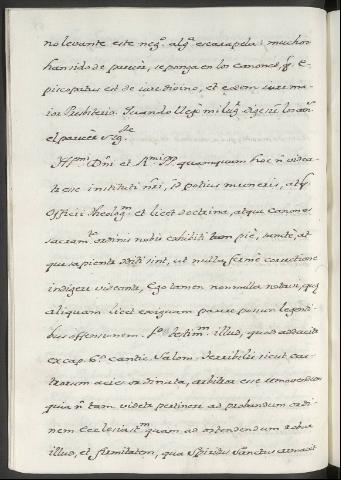 no levante este neg.º alg.ª escarapela: muchos
han sido de parecer, se ponga en los canones, q̃ E-
piscopatus est de iure divino, et eṣdem iure ma-
ior Presbiterio. Quando llegẽ mi lug.r dixe
el parecer sig.te
Ill.mi Dñi et R.mi PP. quamquam hoc ñ videa-
tur esse instituti ñri, sed potius muneris, atq̃
Officii Theolog.m et licet doctrina, atque canones
sacram.ti ordinis nobis exhibiti tam piè, sanctè, at-
que sapienter editi sint, ut nulla fermè correctione
indigere viseantur, Ego tamen nonnulla notavi, quæ
aliquam licet exiguam parere possunt legenti-
bus offensionem. 1.º testim.m illud, quod adducitur
ex cap. 6.º Cantic. Salom. Terribilis sicut cas-
trorum acies ordinata, arbitror esse removendum
quia ñ tam videtur pertinere ad probandum ordi-
nem Ecclesiast.m quam ad ostendendum robur
illud, et firmitatem, qua Spiritus Sanctus